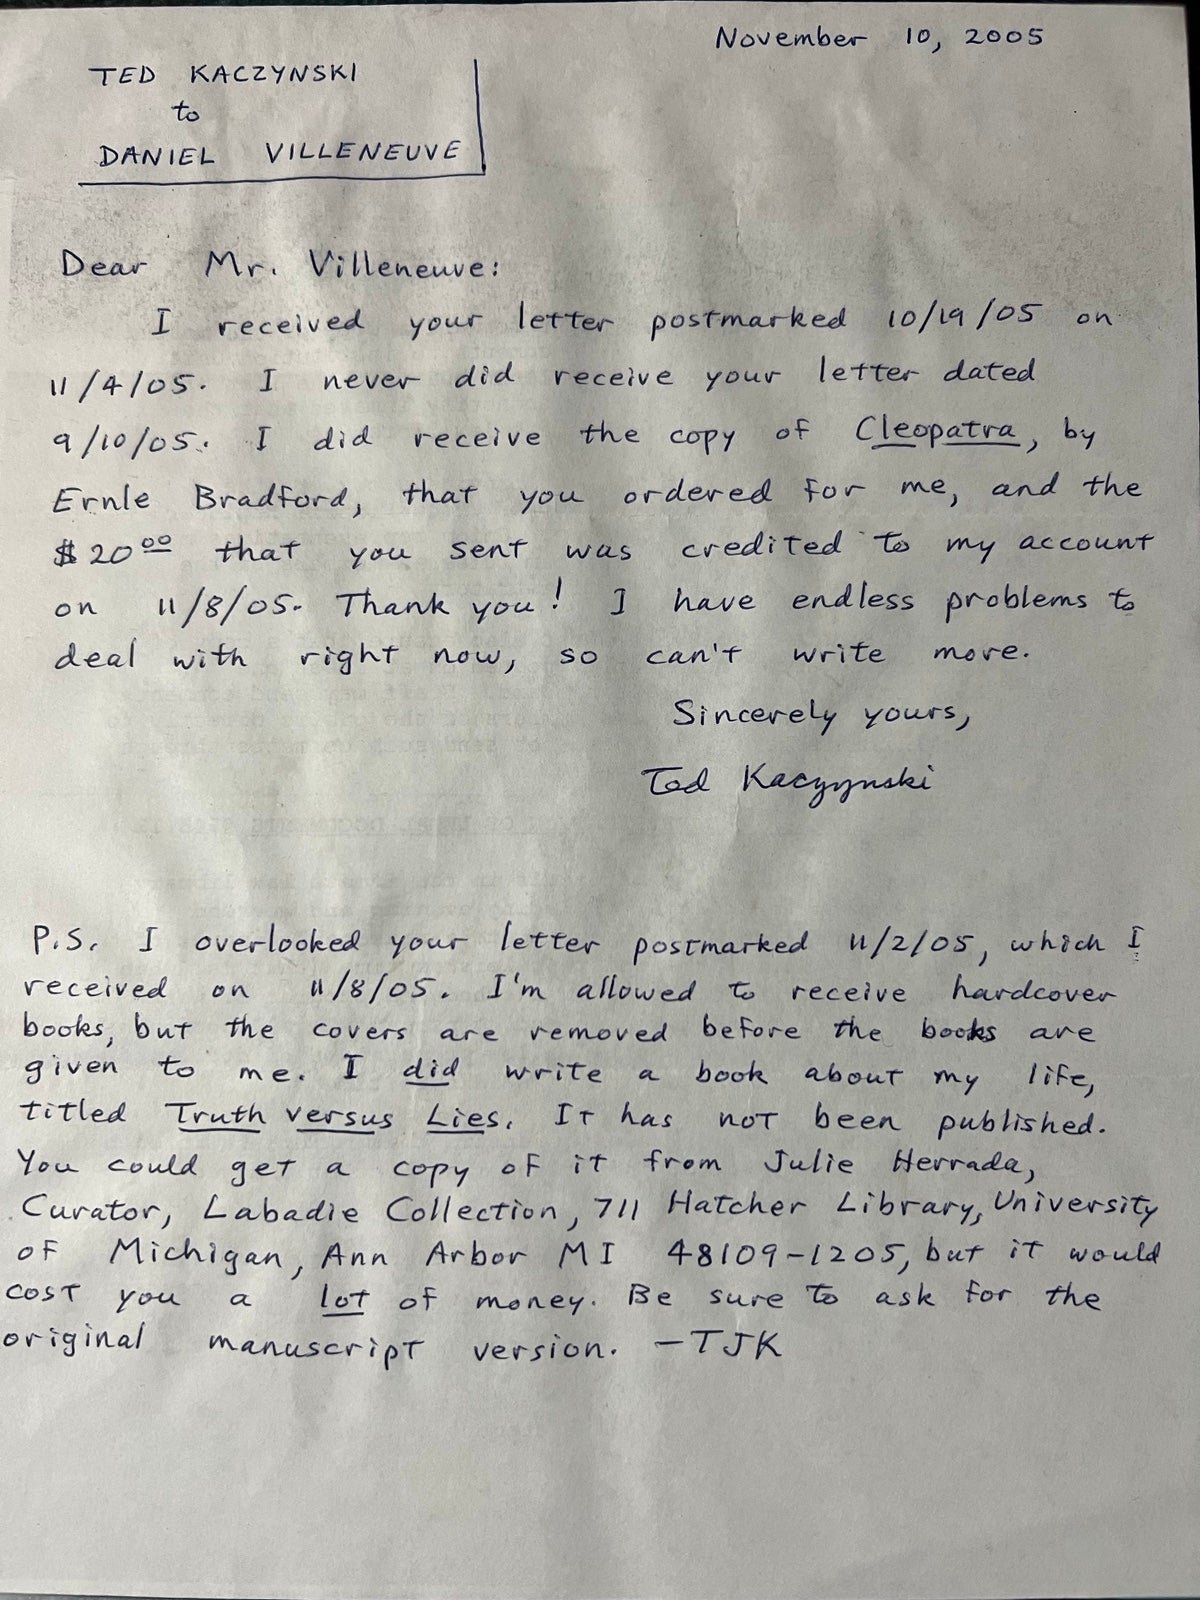 November 10, 2005
TED KACZYNSKI
to
DANIEL VILLENEUVE
Dear Mr. Villeneuve:
I received your letter postmarked 10/19/05 on
11/4/05. I never did receive your letter dated
9/10/05. I did receive the copy of Cleopatra, by
Ernle Bradford, that you ordered for me, and the
$20.00 that you sent was credited to my account
on 11/8/05. Thank you! I have endless problems to
deal with right now, so can't write more.
Sincerely yours,
Ted Kaczynski
P.S. I overlooked your letter postmarked 11/2/05, which I
received on 11/8/05. I'm allowed to receive hardcover
books, but the covers are removed before the books are
given to me. I did write a book about my life,
titled Truth versus Lies. It has not been published.
You could get a copy of it from Julie Herrada,
Curator, Labadie Collection, 711 Hatcher Library, University
of Michigan, Ann Arbor MI 48109-1205, but it would
cost you a lot of money. Be sure to ask for the
original manuscript version. —TJK